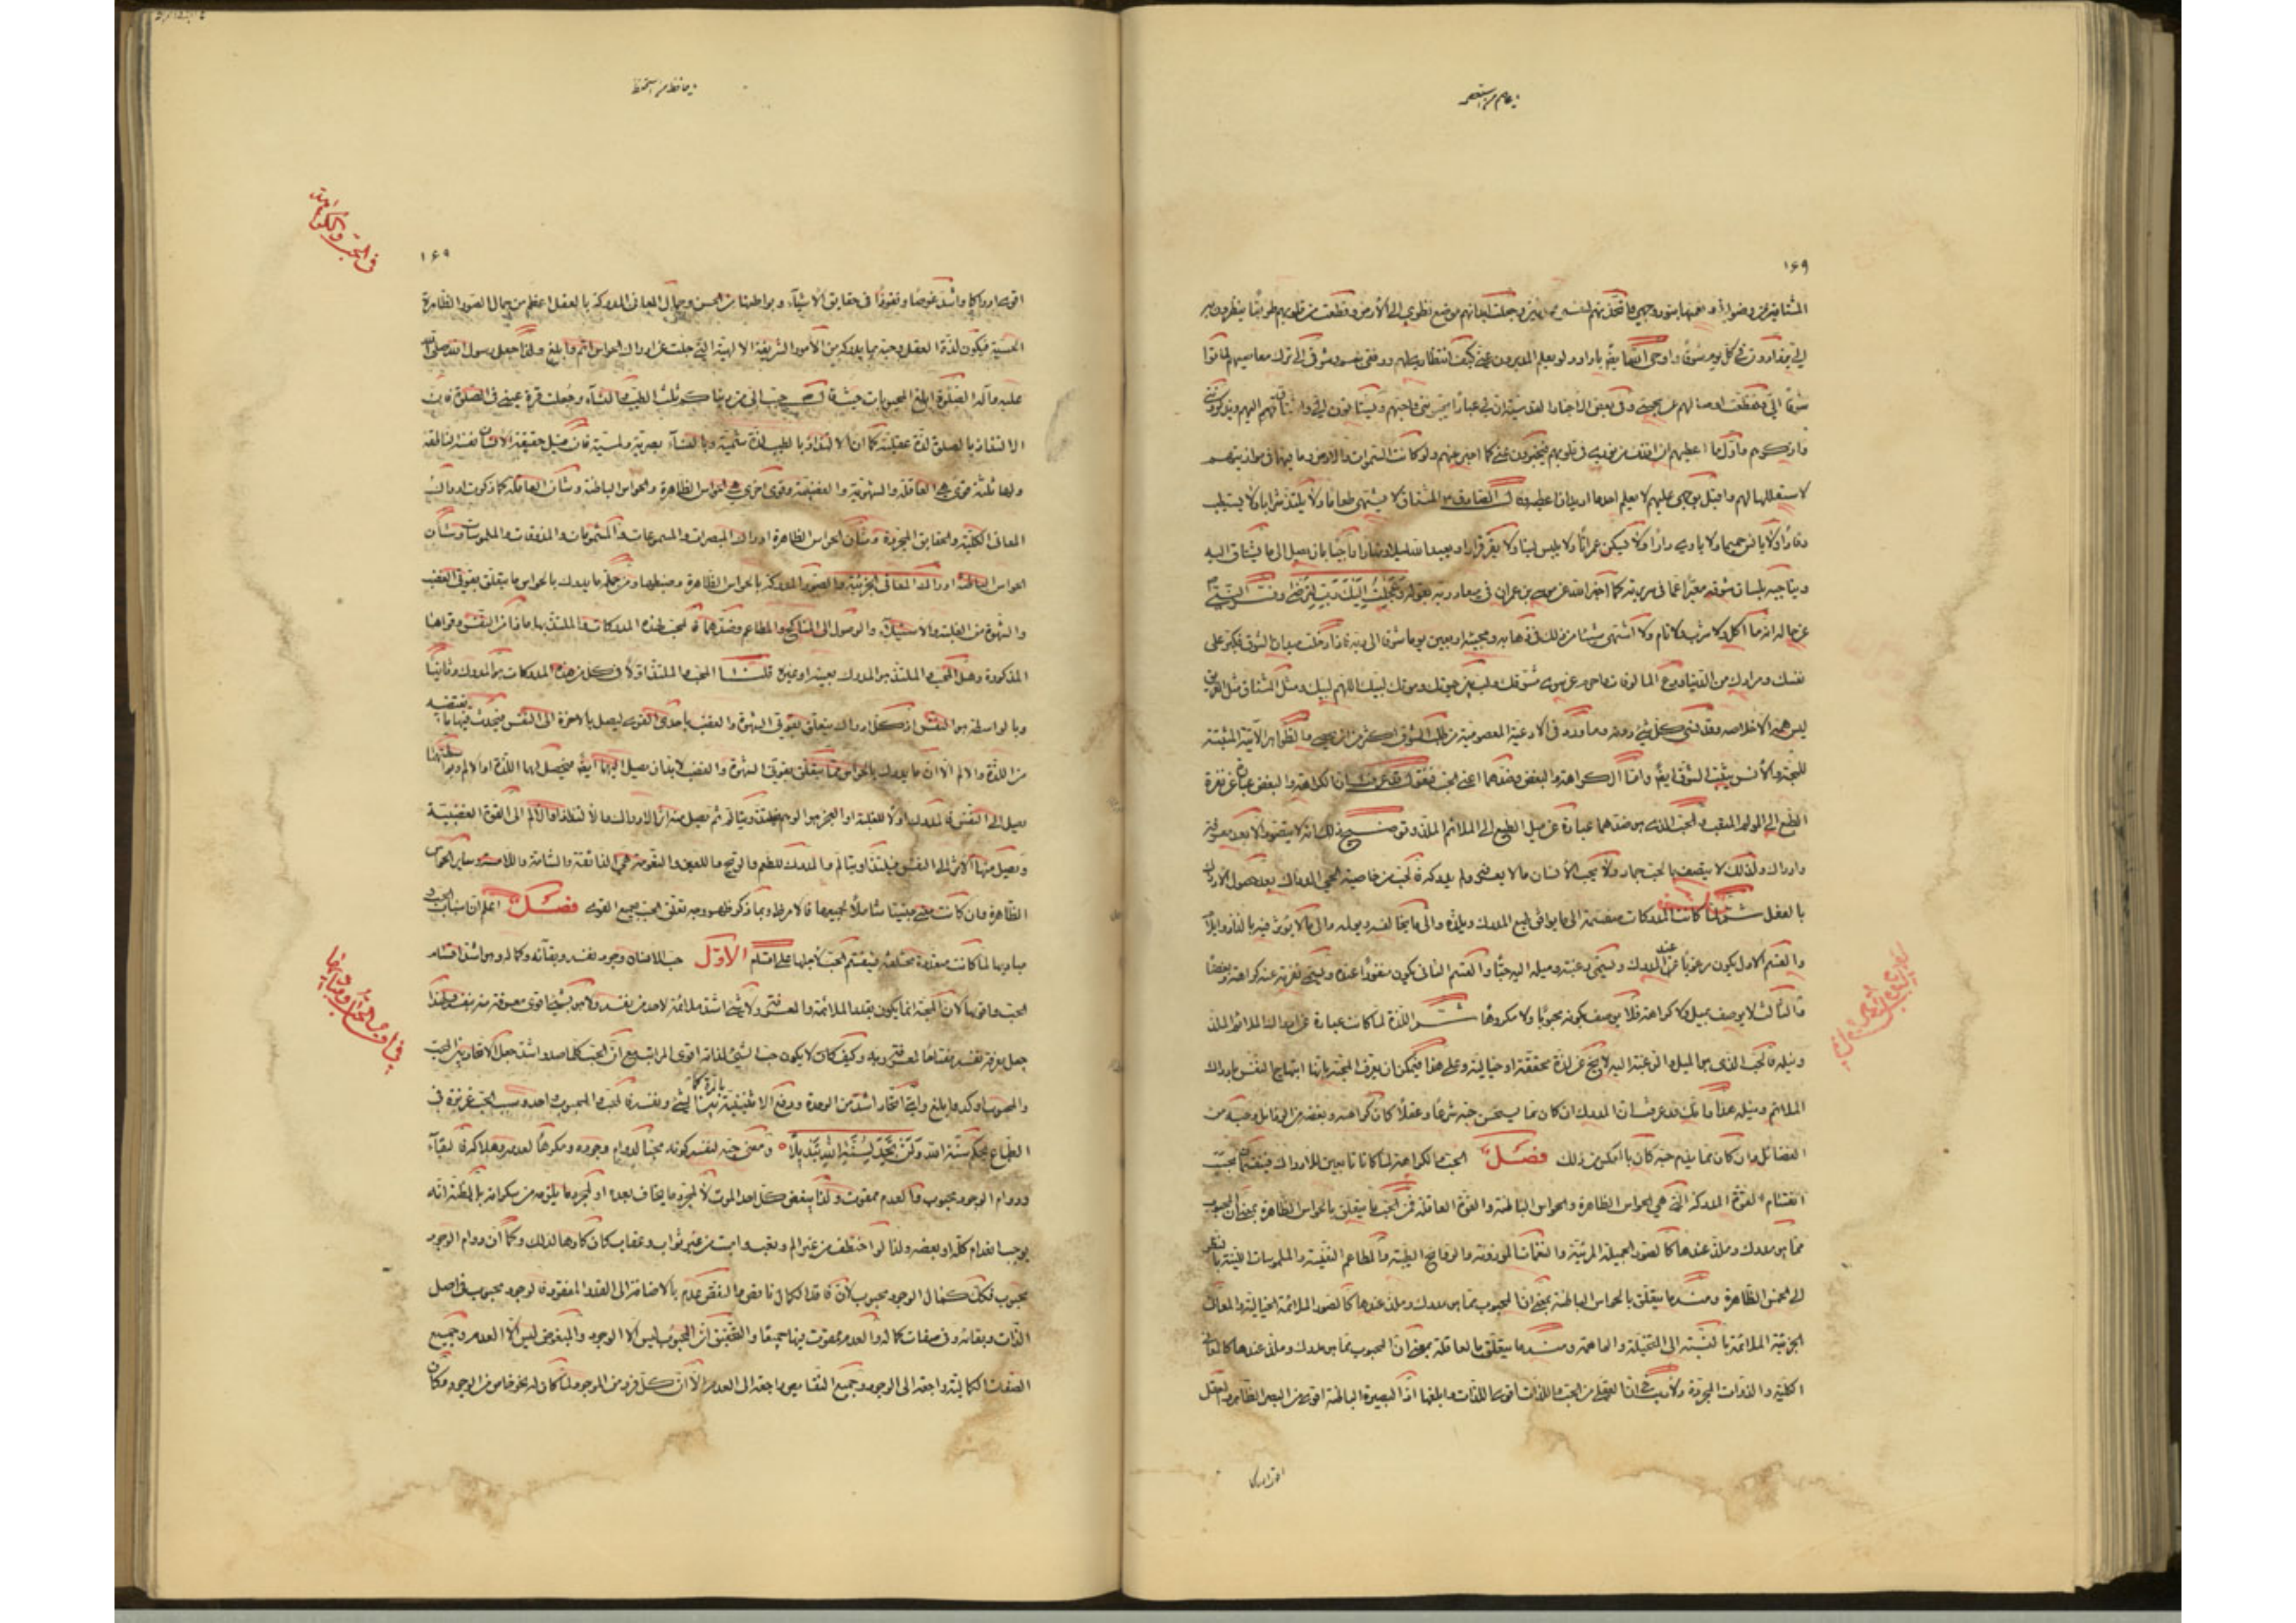 ١٦٩
المشتاقين من رضوانى ونعمتها بنور وجهى فاتخذتهم لنفسى وجعلت ابدانهم موضع نظرى الى الارض وقطعت من قلوبهم طريقا ينظرون به
الى يزدادون فى كل يوم شوقا واوحى الله ايضا يا داود لو يعلم المدبرون عنى كيف انتظارى لهم ورفقى بهم وشوقى الى ترك معاصيهم لماتوا
شوقا الى وتقطعت اوصالهم عن محبتى وفى بعض الاخبار القدسية ان لى عبادا يحبوننى واحبهم ويشتاقون الى واشتاق اليهم ويذكروننى
واذكرهم واول ما اعطيهم ان اقذف من نورى فى قلوبهم فيخبرون عنى كما اخبر عنهم ولو كانت السموات والارض وما فيها فى موازينهم
لاستقللتها لهم واقبل بوجهى عليهم لا يعلم احد ما اريد ان اعطيه قال الصادق المشتاق لا يشتهى طعاما ولا يلتذ شرابا ولا يستطيب
رقادا ولا يانس حميما ولا ياوى دارا ولا يسكن عمرانا ولا يلبس لينا ولا يقر قرارا ويعبد الله ليلا ونهارا راجيا بان يصل الى ما يشتاق اليه
ويناجيه بلسان شوقه معبرا عما فى سريرته كما اخبر الله عن موسى بن عمران فى ميعاد ربه بقوله وعجلت اليك رب لترضى وفسر النبى
عن حاله انه ما اكل ولا شرب ولا نام ولا اشتهى شيئا من ذلك فى ذهابه ومجيئه اربعين يوما شوقا الى ربه فاذا دخلت ميدان الشوق فكبر على
نفسك ومرادك من الدنيا وودع المالوفات واحرم عن سوى مشوقك ولب بين حيوتك وموتك لبيك اللهم لبيك ومثل المشتاق مثل الغريق
ليس همه الا خلاصه وقد نسى كل شئ دونه وما ورد فى الادعية المعصومية من طلب الشوق اكثر من ان يحصى والظواهر الاتية المثبتة
للمحبة والانس يثبت الشوق ايضا واما الكراهة والبغض وضدهما اعنى الحب فنقول قد عرفت ان الكراهة والبغض عبارة عن نفرة
الطبع الى المولم المتعب والحب الذى هو ضدهما عبارة عن ميل الطبع الى الملائم الملذ وتوضيح ذلك انه لا يتصور الا بعد معرفة
وادراك ولذلك لا يتصف بالحب جماد ولا يحب الانسان ما لا يعرفه ولم يدركه فالحب من خاصية الحى المدرك بعد حصول الادراك
بالفعل ثم لما كانت المدركات منقسمة الى ما يوافق طبع المدرك ويلذه والى ما يخالفه ويولمه والى ما لا يؤثر فيه بالذاذ وايلام
والقسم الاول يكون مرغوبا عند المدرك ويسمى رغبته وميله اليه حبا والقسم الثانى يكون منفورا عنه ويسمى نفرته عنه كراهة وبغضا
والثالث لا يوصف بميل ولا كراهة فلا يوصف بكونه محبوبا ولا مكروها ثم اللذة لما كانت عبارة عن ادراك الملائم الملذ
ونيله فالحب الذى هو الميل والرغبة اليه لا يخ عن لذة محققة او خيالية وعلى هذا فيمكن ان يعرف المحبة بانها ابتهاج النفس بادراك
الملائم ونيله هذا وانك قد عرفت ان المدرك ان كان مما يستحسن حبه شرعا وعقلا كان كراهته وبغضه من الرذائل وحبه من
الفضائل وان كان مما يذم حبه كان بالعكس من ذلك فصل الحب والكراهة لما كانا تابعين للادراك فينقسمان بحسب
انقسام القوة المدركة التى هى الحواس الظاهرة والحواس الباطنة والقوة العاقلة فمن الحب ما يتعلق بالحواس الظاهرة بمعنى ان المحبوب
مما هو مدرك وملذ عندها كالصور الجميلة المرئية والنغمات الموزونة والروائح الطيبة والمطاعم النفيسة والملبوسات اللينة بالنظر
الى الخمس الظاهرة ومنه ما يتعلق بالحواس الباطنة بمعنى ان المحبوب مما هو مدرك وملذ عندها كالصور الملائمة الخيالية والمعانى
الجزئية الملائمة بالنسبة الى المتخيلة والواهمة ومنه ما يتعلق بالعاقلة بمعنى ان المحبوب مما هو مدرك وملذ عندها كالمعانى
الكلية والذوات المجردة ولا ريب فى ان العقلى من الحب واللذات اقوى اللذات وابلغها اذ البصيرة الباطنة اقوى من البصر الظاهر والعقل
اقوى ادراكا
١٦٩
فى الحب والكراهة
اقوى ادراكا واشد غوصا ونفوذا فى حقايق الاشياء وبواطنها من الحس وجمال المعانى المدركة بالعقل اعظم من جمال الصور الظاهرة
الحسية فيكون لذة العقل وحبه بما يدركه من الامور الشريفة الالهية التى جلت عن ادراك الحواس اتم وابلغ ولذا جعل رسول الله صلى الله
عليه وآله الصلوة ابلغ المحبوبات حيث قال حبب الى من دنياكم ثلث الطيب والنساء وجعلت قرة عينى فى الصلوة فان
الالتذاذ بالصلوة لذة عقلية كما ان الالتذاذ بالطيب لذة شمية وبالنساء بصرية ولمسية فان قيل حقيقة الانسان نفسه الناطقة
ولها ثلثة قوى هى العاقلة والشهوية والغضبية وقوى اخرى هى الحواس الظاهرة والحواس الباطنة وشان العاقلة كما ذكرت ادراك
المعانى الكلية والحقايق المجردة وشان الحواس الظاهرة ادراك المبصرات والمسموعات والمشمومات والمذوقات والملموسات وشان
الحواس الباطنة ادراك المعانى الجزئية والصور المدركة بالحواس الظاهرة وضبطها ومن جملة ما يدرك بالحواس ما يتعلق بقوتى الغضب
والشهوة من الغلبة والاستيلاء والوصول الى المناكح والمطاعم وضدهما فالمحب لهذه المدركات والملتذ بها ماذا من النفس وقواها
المذكورة وهل المحب والملتذ هو المدرك بعينه او غيره قلنا المحب والملتذ اولا فى كل من هذه المدركات هو المدرك وثانيا
وبالواسطة هو النفس اذ كل ادراك يتعلق بقوتى الشهوة والغضب باحدى القوى ليصل بالاخرة الى النفس فيحدث فيها ما يقتضيه
من اللذة والالم الا ان ما يدرك بالحواس مما يتعلق بقوتى الشهوة والغضب لابد ان يصل اليهما ايضا فيحصل لهما اللذة او الالم وبواسطتهما
يصل الى النفس فالمدرك اولا للغلبة او العجز هو الوهم فيلتذ ويتالم ثم يصل منه اثر الادراك والالتذاذ والالم الى القوة الغضبية
ويصل منها الاثر الى النفس فيلتذ او يتالم والمدرك للطعم والريح واللين والنعومة هى الذائقة والشامة واللامسة وساير الحواس
الظاهرة وان كانت مبينا شاملا لجميعها فالامر ظ وبما ذكر ظهر وجه تعلق الحب بجميع القوى فصل اعلم ان اسباب الحب و
مباديها لما كانت متعددة مختلفة فينقسم الحب لاجلها على اقسام الاول حب الانسان وجود نفسه وبقائه وكماله وهو اشد اقسام
فى اقسام الحب ومباديها
الحب واقويها لان المحبة انما يكون بقدر الملائمة والمعرفة ولا شئ اشد ملائمة لاحد من نفسه ولا هو بشئ اقوى معرفة منه بنفسه ولهذا
جعل معرفة نفسه مفتاحا لمعرفة ربه وكيف كان لا يكون حب الشئ لذاته اقوى المراتب مع ان الحب كلما صار اشد جعل الاتحاد بين المحب
والمحبوب اوكد وابلغ واى اتحاد اشد من الوحدة ورفع الاثنينية بالمرة كما بين الشئ ونفسه فالمحب والمحبوب واحد وسبب الحب غريزة فى
الطباع بحكم سنة الله ولن تجد لسنة الله تبديلا ومعنى حبه لنفسه كونه محبا لدوام وجوده ومكرها لعدمه وهلاكه فالبقاء
ودوام الوجود محبوب والعدم ممقوت ولذا يبغض كل احد الموت لا لمجرد ما يخاف بعده او لمجرد ما يلزمه من سكراته بل لظنه انه
يوجب انعدام كله او بعضه ولذا لو اختطف من غير الم وتعب واميت من غير ثواب وعقاب كان كارها لذلك وكما ان دوام الوجود
محبوب فكك كمال الوجود محبوب لان فاقد الكمال ناقص والنقص عدم بالاضافة الى القدر المفقود فالوجود محبوب فى اصل
الذات وبقائه وفى صفات كماله والعدم ممقوت فيها جميعا والتحقيق ان المحبوب ليس الا الوجود والمبغوض ليس الا العدم وجميع
الصفات الكمالية راجعة الى الوجود وجميع النقائص راجعة الى العدم الا ان كل فرد من الموجود لما كان له نحو خاص من الوجود وكان